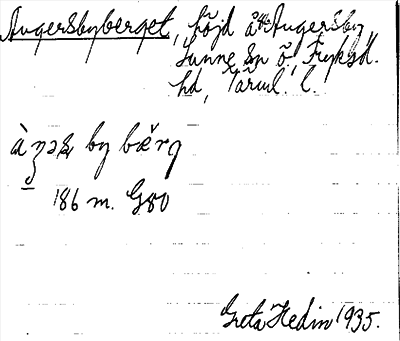 Augersbyberget, höjd å Augersby,
Sunne sn ö., Fryksd.
hd, Värml. l.
by bærg
186 m. G80
Greta Hedin 1935.